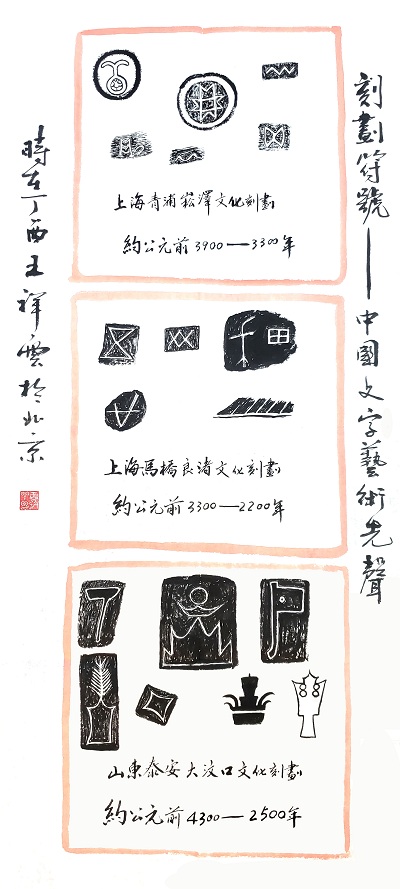 刻劃符號——中國文字藝術先聲
上海青浦崧澤文化刻劃
約公元前3900—3300年
上海馬橋良渚文化刻劃
約公元前3300—2200年
山東泰安大汶口文化刻劃
約公元前4300—2500年
時在丁酉王祥雲於北京